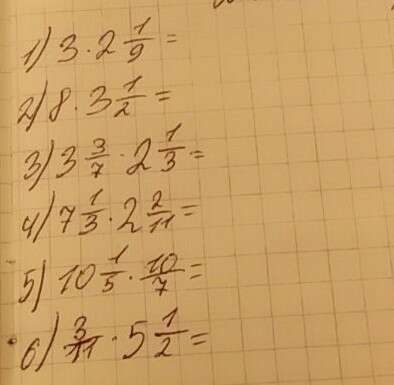 1) 3 · 2 1/9 =
2) 8 · 3 1/2 =
3) 3 3/7 · 2 1/3 =
4) 7 1/3 · 2 2/11 =
5) 10 1/5 · 10/7 =
6) 3/11 · 5 1/2 =